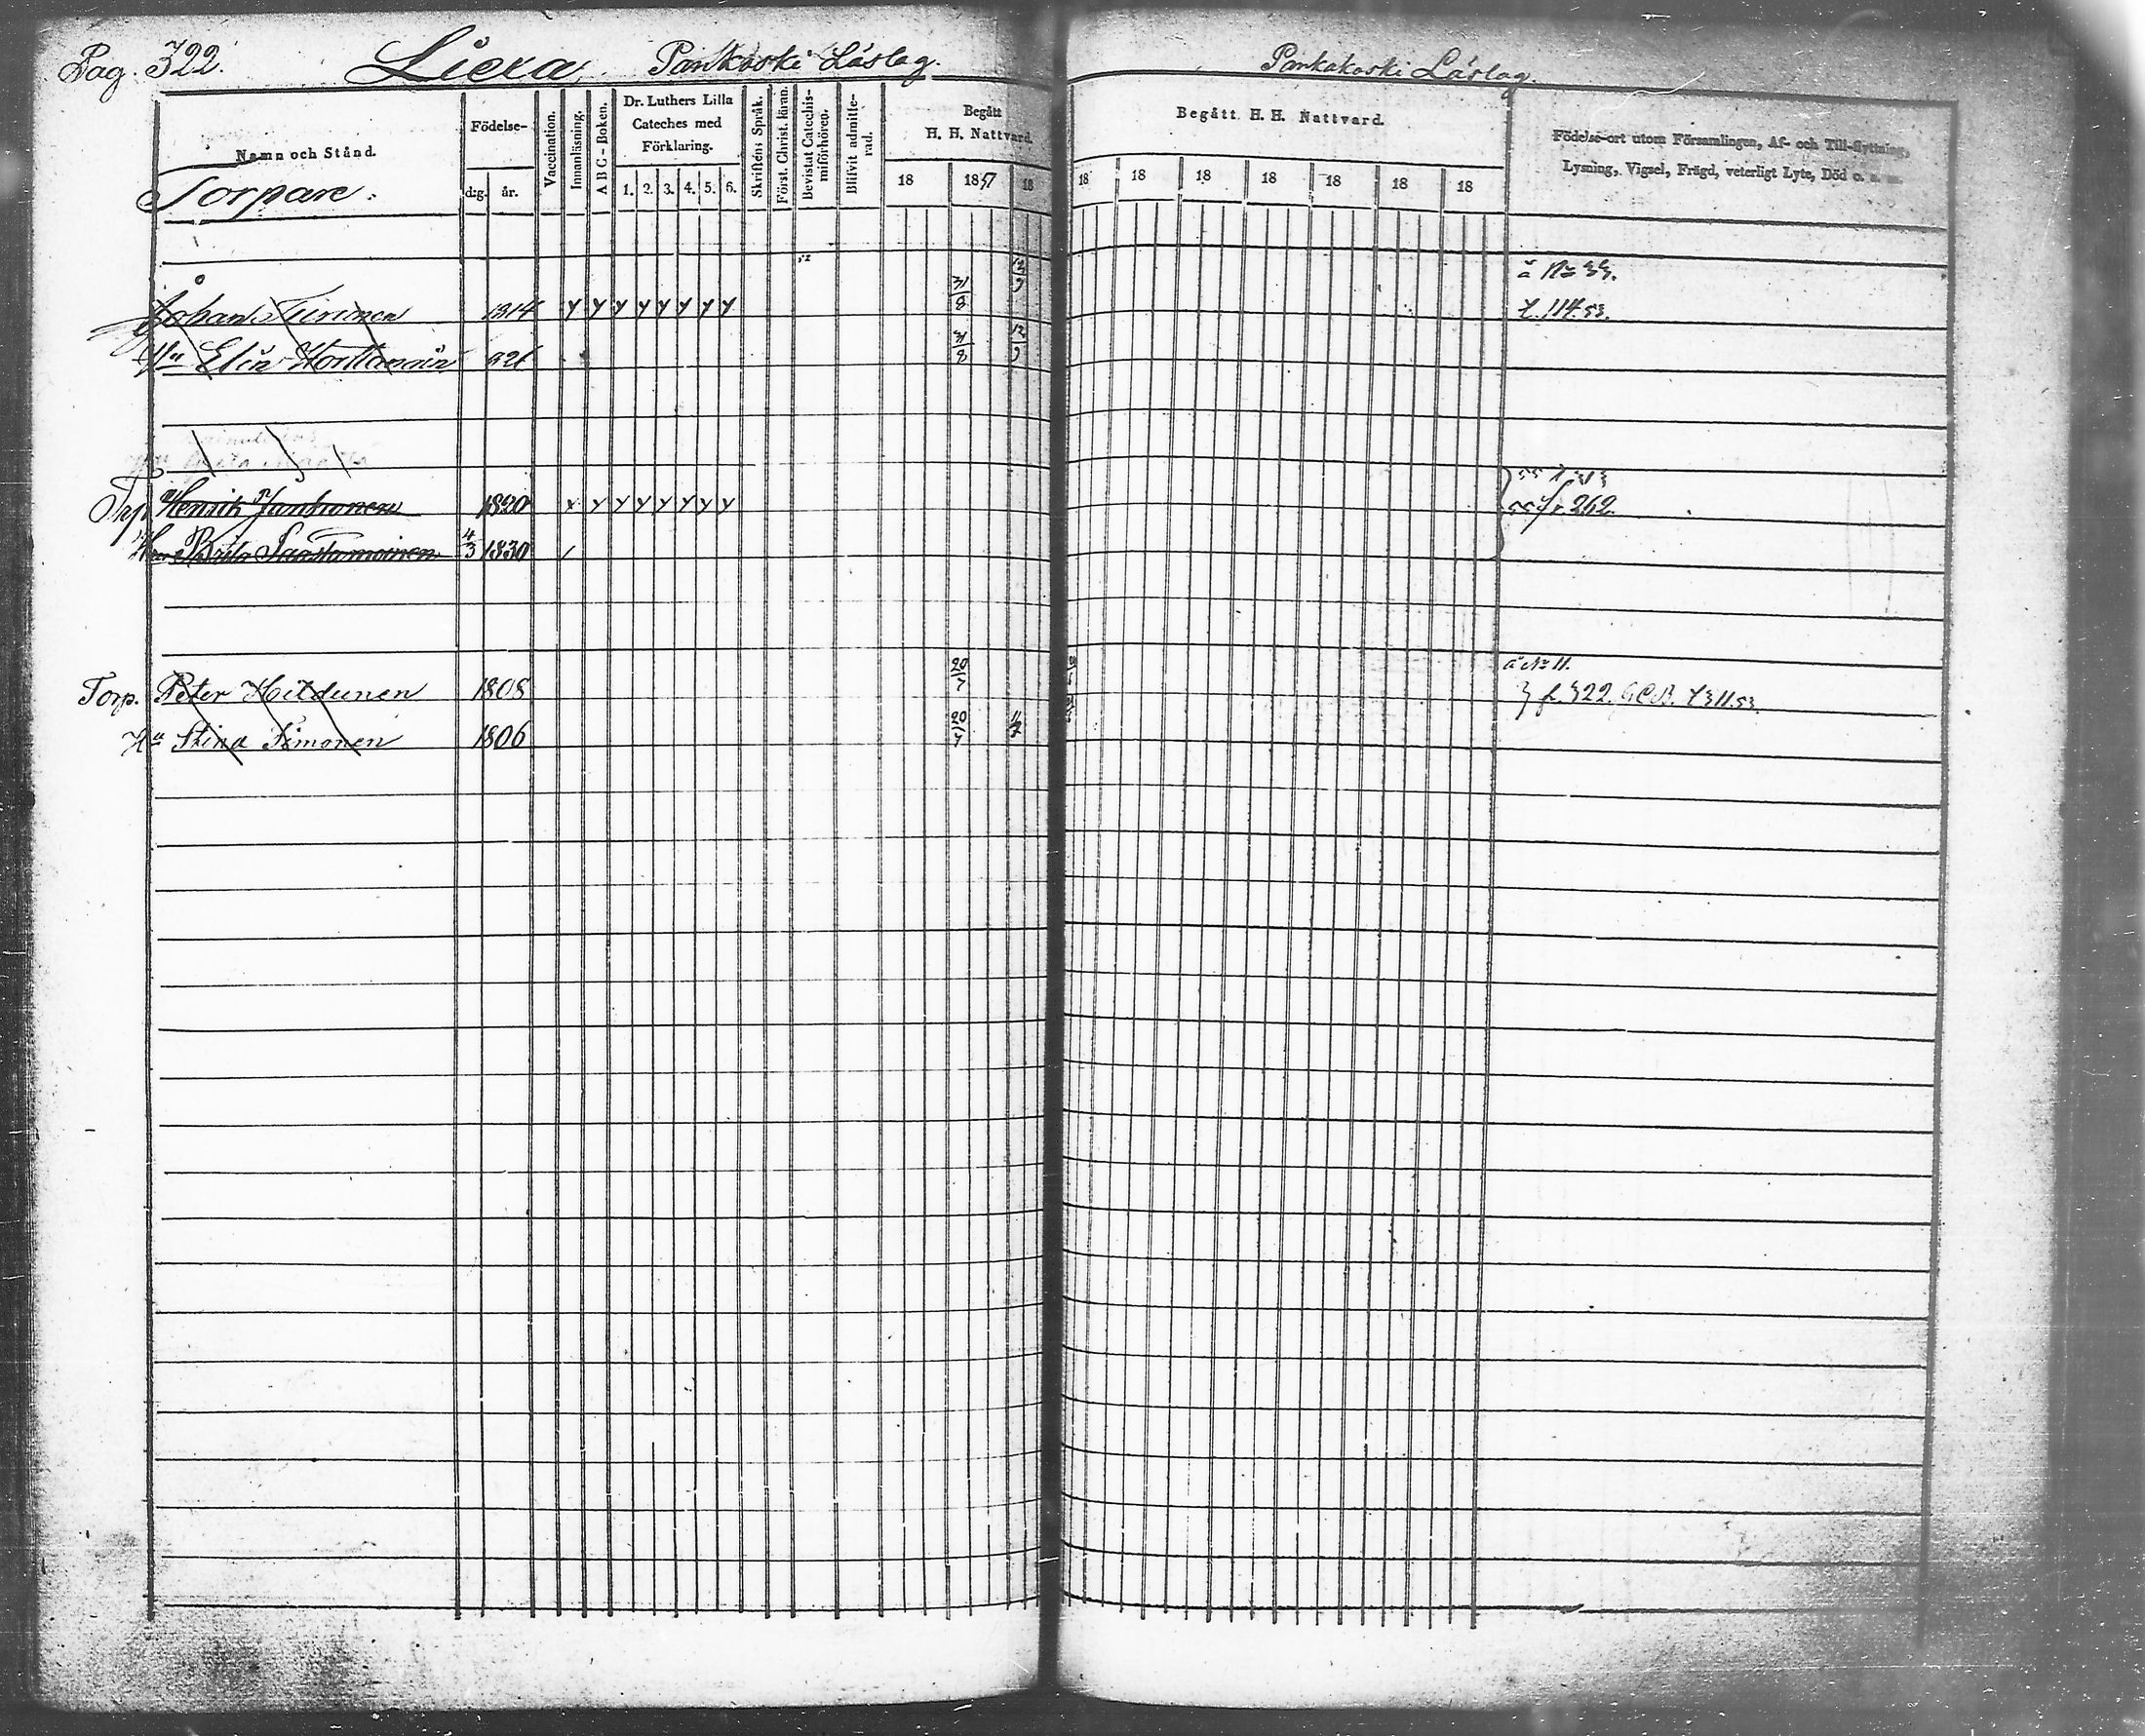 Pag. 322. Liexa Pankakoski Läslag.
Pankakoski Läslag.
Namn och Stånd.
Torpare:
Födelse-
dag. år.
Vaccination.
Innanläsning.
A B C - Boken.
Dr. Luthers Lilla
Cateches med
Förklaring.
1. 2. 3. 4. 5. 6.
Skriftens Språk.
Först. Christ. läran.
Bevistat Catechis-
miförhören.
Blifvit admitte-
rad.
Begått
H. H. Nattvard.
18 1857 18
Begått H. H. Nattvard.
18 18 18 18 18 18 18
Födelse-ort utom Församlingen, Af- och Till-flyttning,
Lysning, Vigsel, Frägd, veterligt Lyte, Död o. s. m.
å No 33.
Johan Turunen 1814 31/8 t. 114.53.
Hu Elin 826 31/8 12/9
Torp. Henrik Janhonen 1820 262
Hu Brita Saastamoinen 4/3 1830
å No 11.
Torp. Peter Hiltunen 1808 20/7 f. 322.
Hu Stina Timonen 1806 20/7